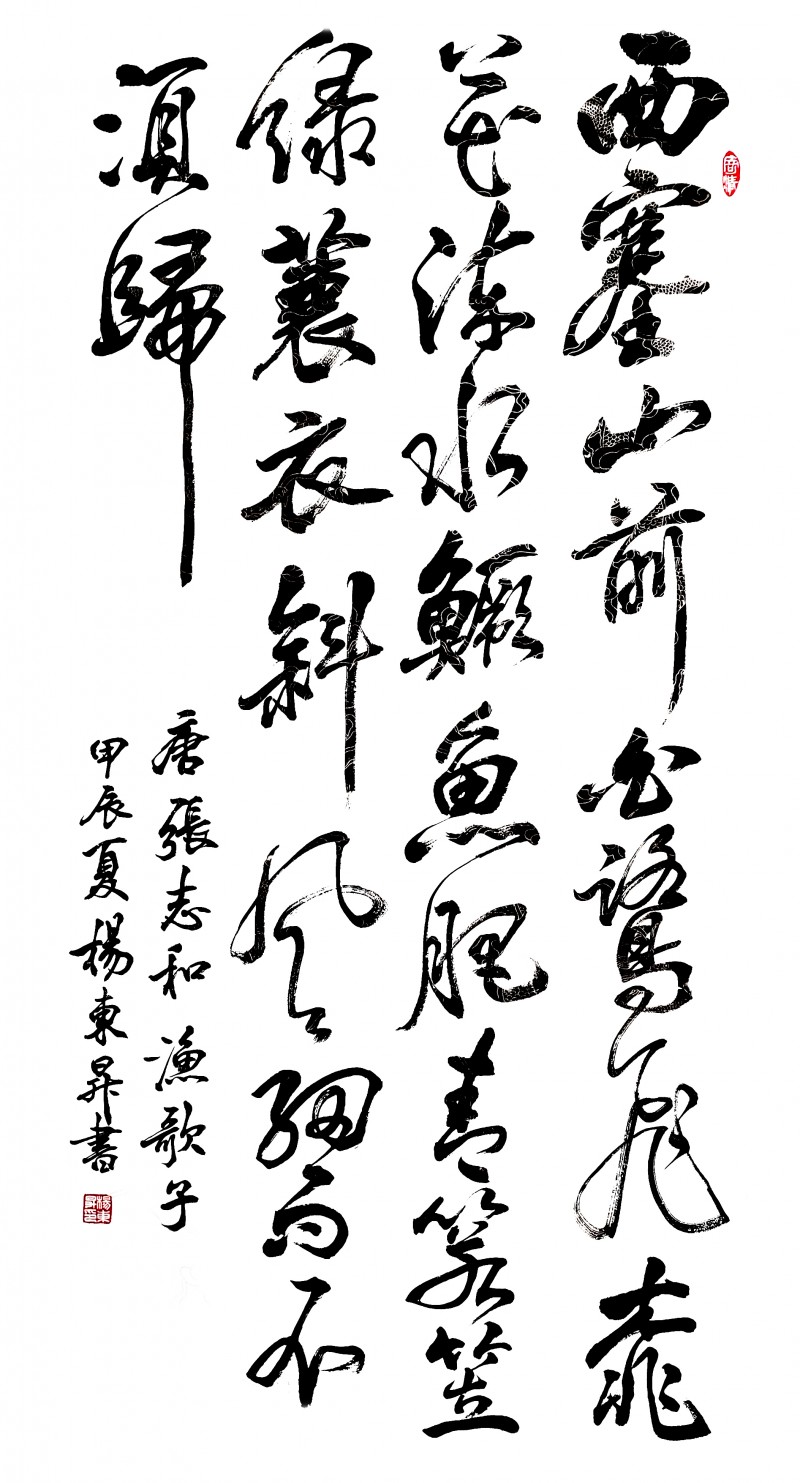 西塞山前白鷺飛桃
花流水鱖魚肥青箬笠
綠蓑衣斜風細雨不
須歸
唐張志和漁歌子
甲辰夏楊東昇書
楊東昇印